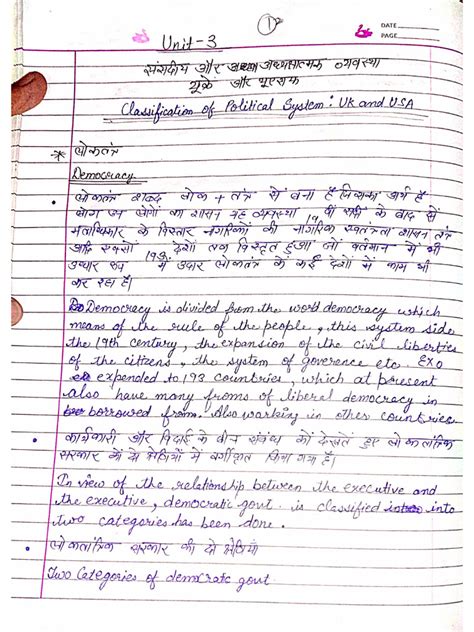 Unit-3
DATE
PAGE
संसदीय और अध्यक्षात्मक व्यवस्था
यूके और यूएसए
Classification of Political System: UK and USA
* लोकतंत्र
Democracy
लोकतंत्र शब्द लोक + तंत्र से बना है जिसका अर्थ है
लोगों का शासन यह व्यवस्था 19 वी सदी के बाद से
मताधिकार के विस्तार नागरिकों की नागरिक स्वतंत्रता शासन तंत्र
आदि 193 देशों तक विस्तृत हुआ जो वर्तमान में भी
उधार रूप में उदार लोकतंत्र के कई देशों में काम भी
कर रहा है।
Democracy is divided from the word democracy which
means of the rule of the people, this system side
the 19th century, the expansion of the civil liberties
of the citizens, the system of goverence etc. Exo
expended to 193 countries, which at present
also have many froms of liberal democracy in
borrowed from. Also working in other countries
• कार्यकारी और विदाई के बीच संबंध को देखते हुए लोकतांत्रिक
सरकार को दो श्रेणियों में वर्गीकृत किया गया है।
In view of the relationship between the executive and
the executive, democratic govt. is classified into
two categories has been done.
• लोकतांत्रिक सरकार की दो श्रेणियाँ
Two Categories of democratc govt